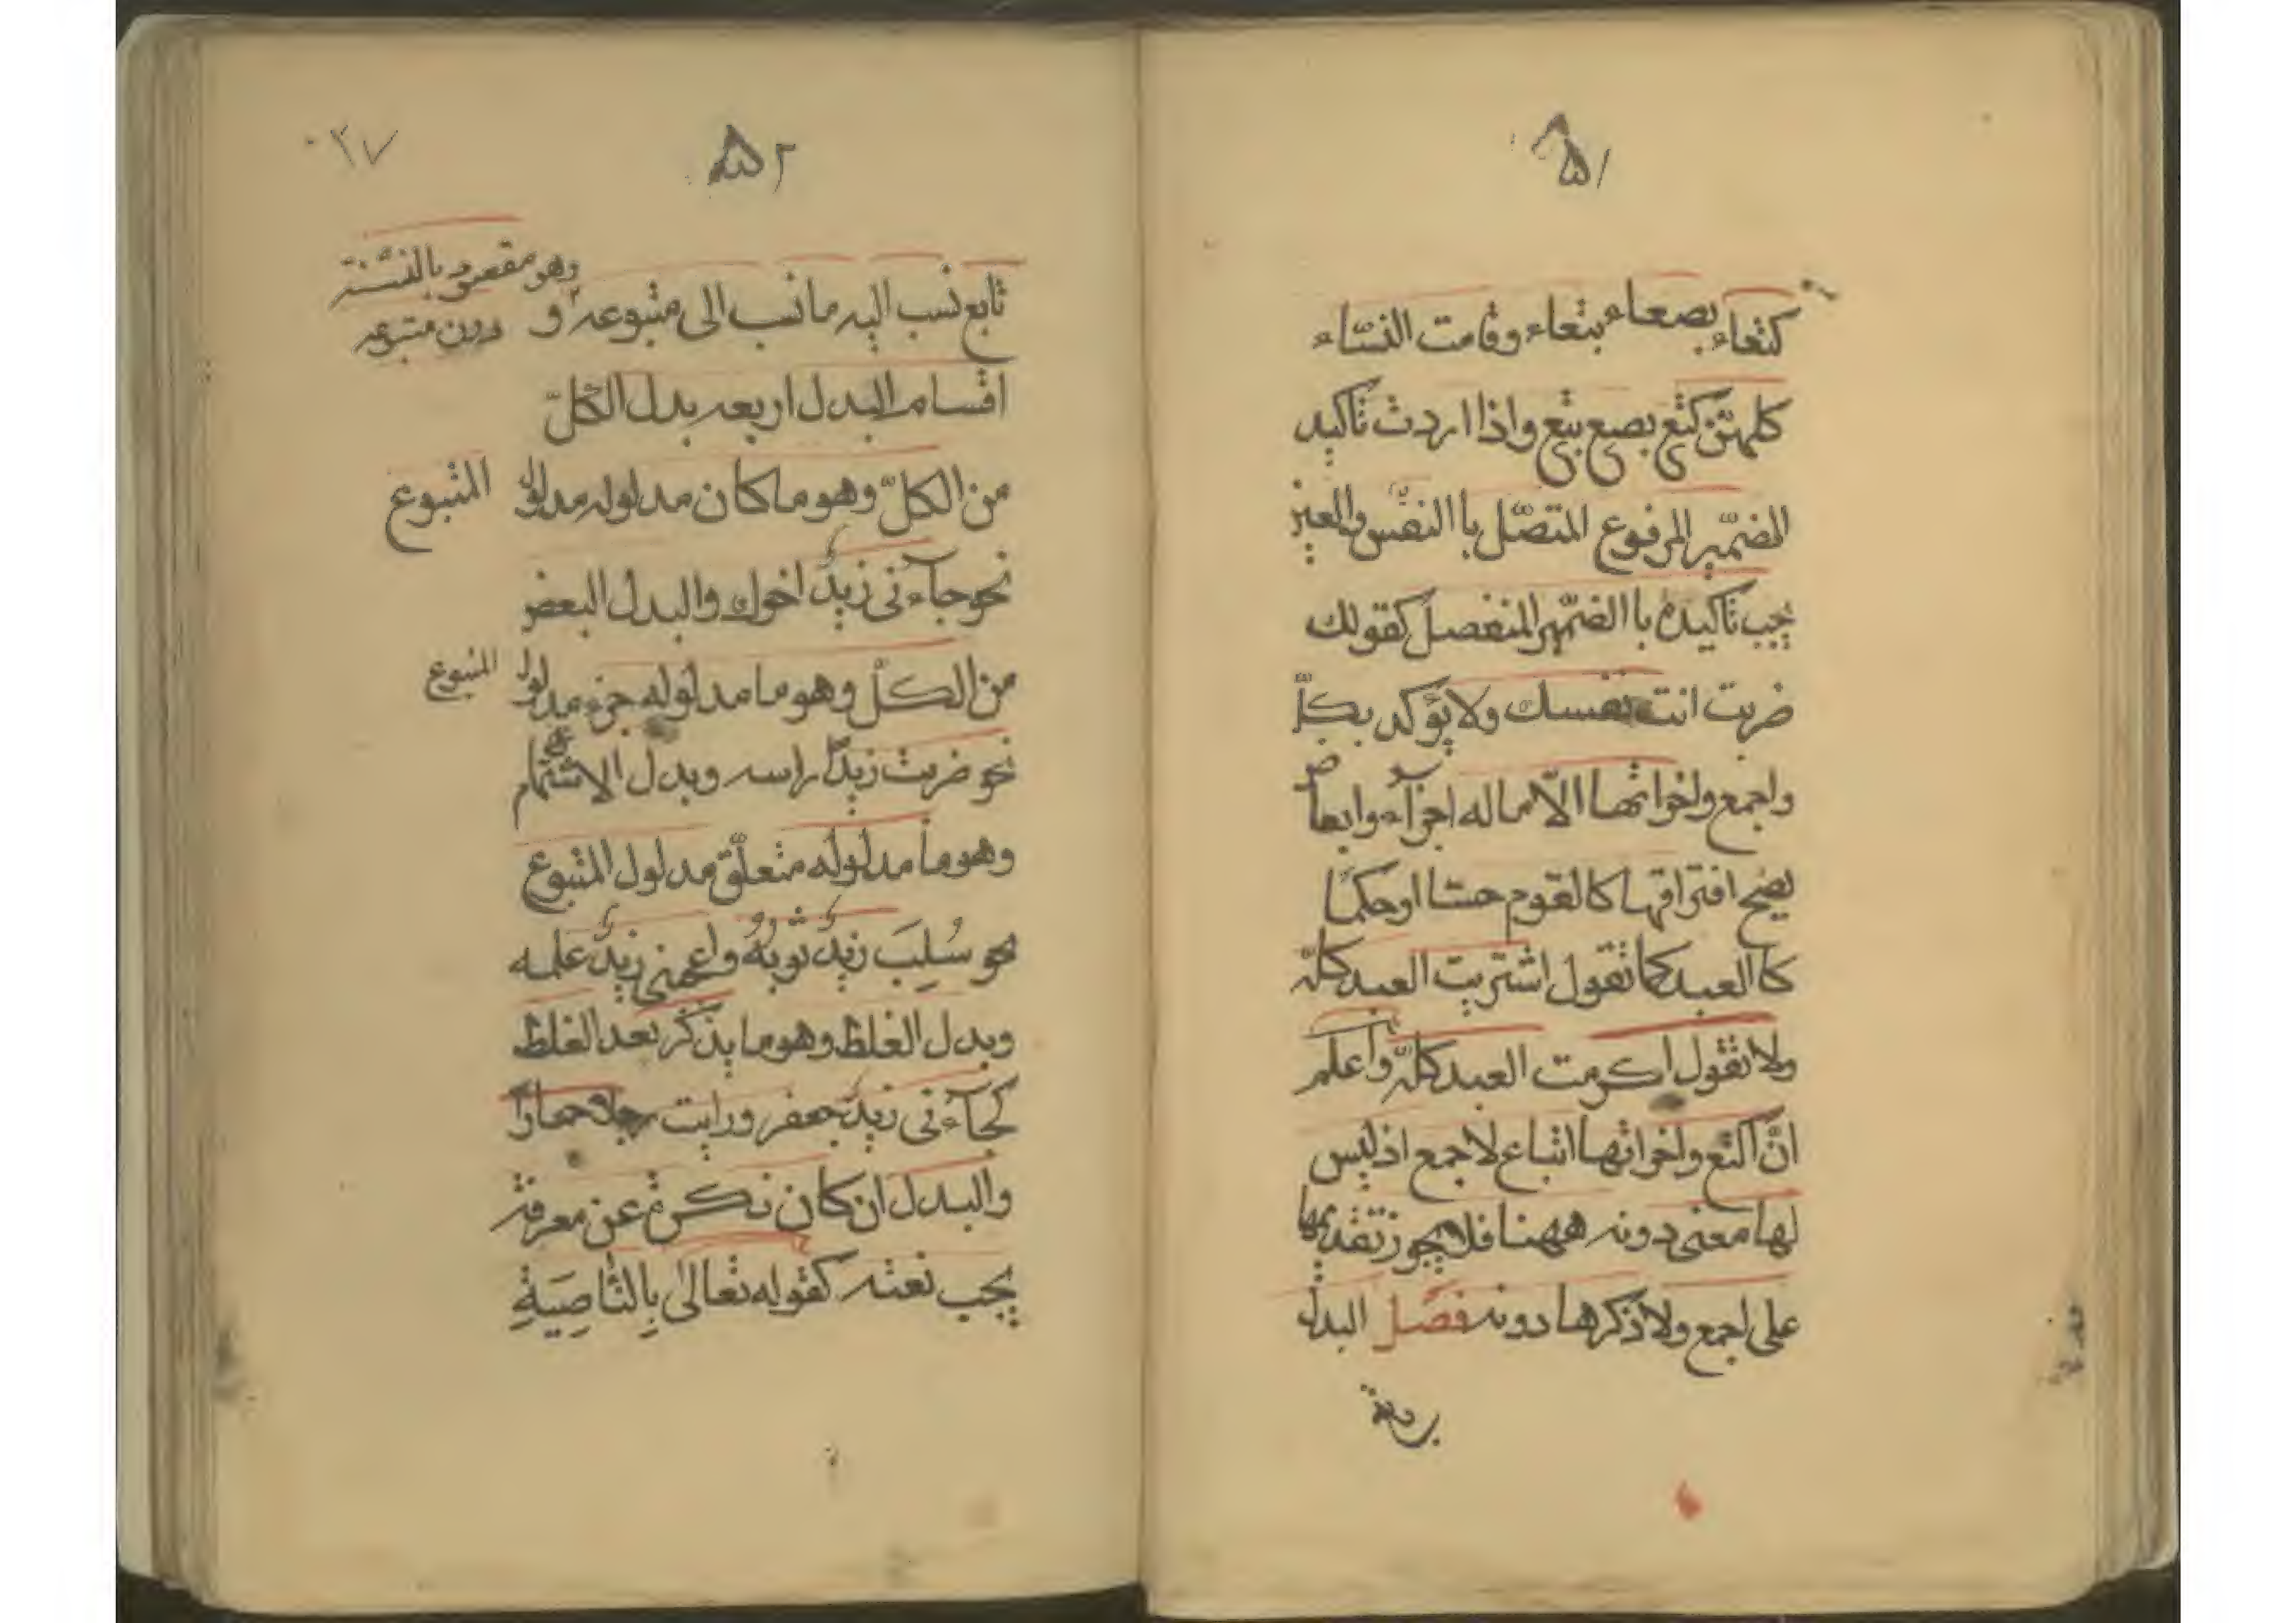 ۵۱
كتعاء بصعاء بتعاء وقامت النسّاء
كلهنّ كتع بصع بتع واذا اردت تاكيد
الضمّير المرفوع المتصّل با النفس والعين
يجب تاكيده با الضمّير المنفصل كقولك
ضربت انت نفسك ولا يؤكد بكلّ
واجمع واخواتها الّا ماله اجزآء وابعاض
يصح افتراقها كالقوم حسّا او حكمًا
كا العبد كما تقول اشتريت العبد كلّه
ولا تقول اكرمت العبد كلّه واعلم
انّ اكتع واخواتها اتباع لاجمع اذ ليس
لها معنى دونه ههنا فلا يجوز تقديمها
على اجمع ولا ذكرها دونه فصل البدل
۵۲
۰۲۷
تابع نسب اليه ما نسب الى متبوعه و
وهو مقصود بالنسّبة
دون متبوعه
اقسام البدل اربعه بدل الكلّ
من الكلّ وهو ما كان مدلوله مدلول المتبوع
نحو جآءنى زيدٌ اخوك والبدل البعض
من الكلّ وهو ما مدلوله جزء مدلول المتبوع
نحو ضربت زيدًا راسه وبدل الاشتمال
وهو ما مدلوله متعلّق مدلول المتبوع
نحو سُلِبَ زيدٌ ثوبُهُ واعجبنى زيدٌ علمه
وبدل الغلط وهو ما يذكر بعد الغلط
كجآءنى زيدٌ جعفر ورايت رجلا حمارًا
والبدل ان كان نكرة عن معرفة
يجب نعته كقوله تعالى بِالنّاصِيَةِ